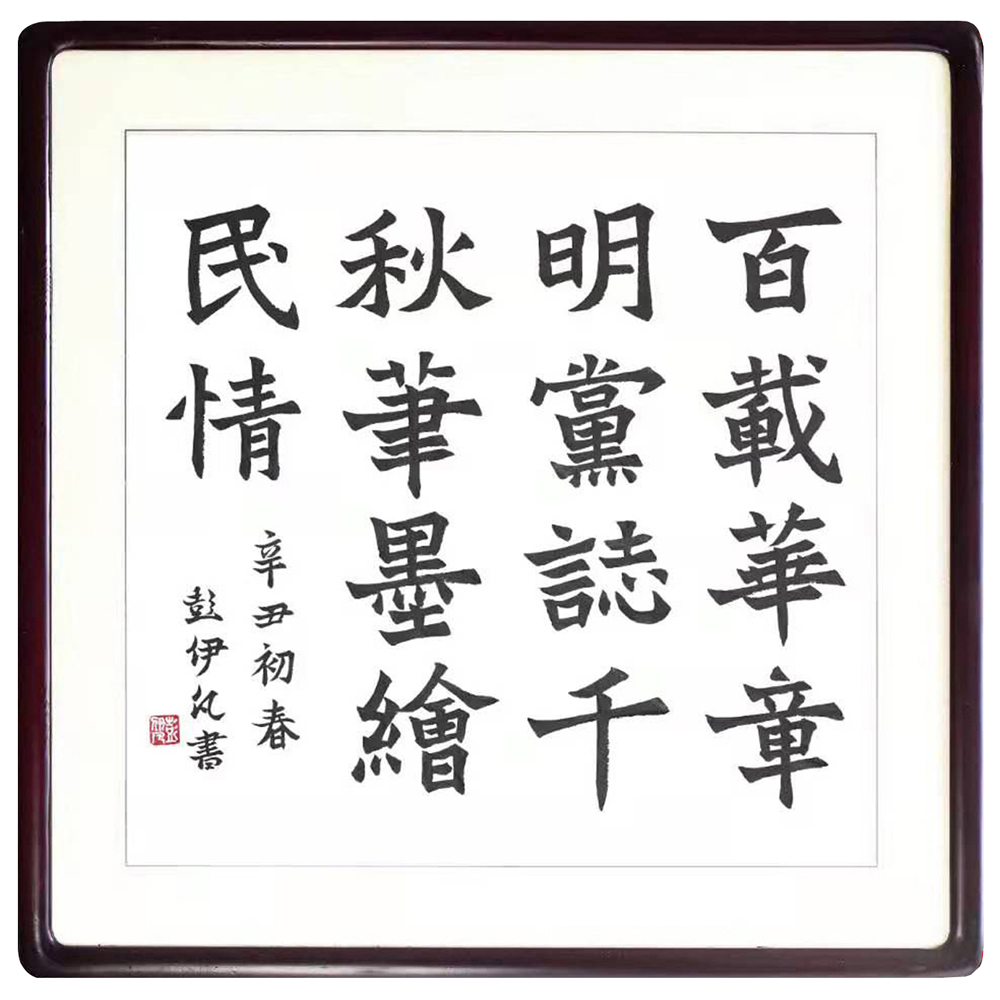 百載華章
明黨誌千
秋筆墨繪
民情
辛丑初春
彭伊凡書